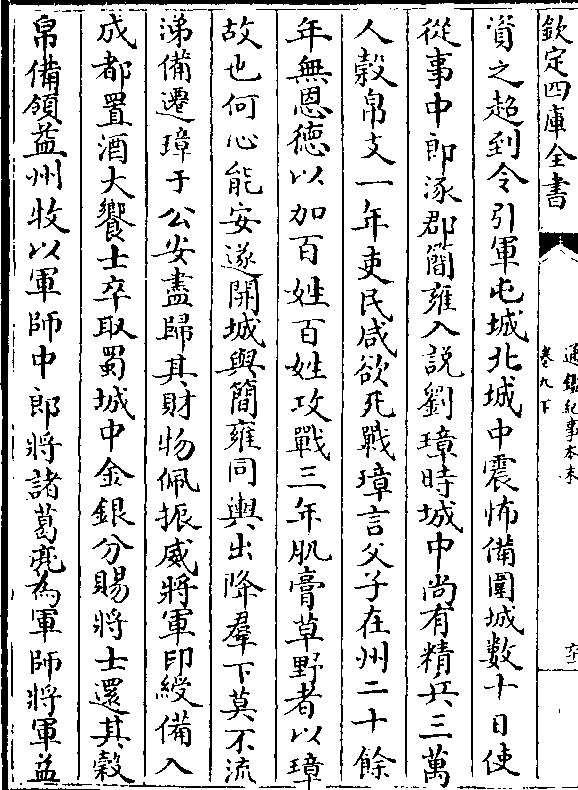 欽定四庫全書
通鑑紀事本末
卷九下
資之超到令引軍屯城北城中震怖備圍城數十日使
從事中郎涿郡簡雍入說劉璋時城中尚有精兵三萬
人穀帛支一年吏民咸欲死戰璋言父子在州二十餘
年無恩德以加百姓百姓攻戰三年肌膏草野者以璋
故也何心能安遂開城與簡雍同輿出降羣下莫不流
涕備遷璋于公安盡歸其財物佩振威將軍印綬備入
成都置酒大饗士卒取蜀城中金銀分賜將士還其穀
帛備領益州牧以軍師中郎將諸葛亮為軍師將軍益